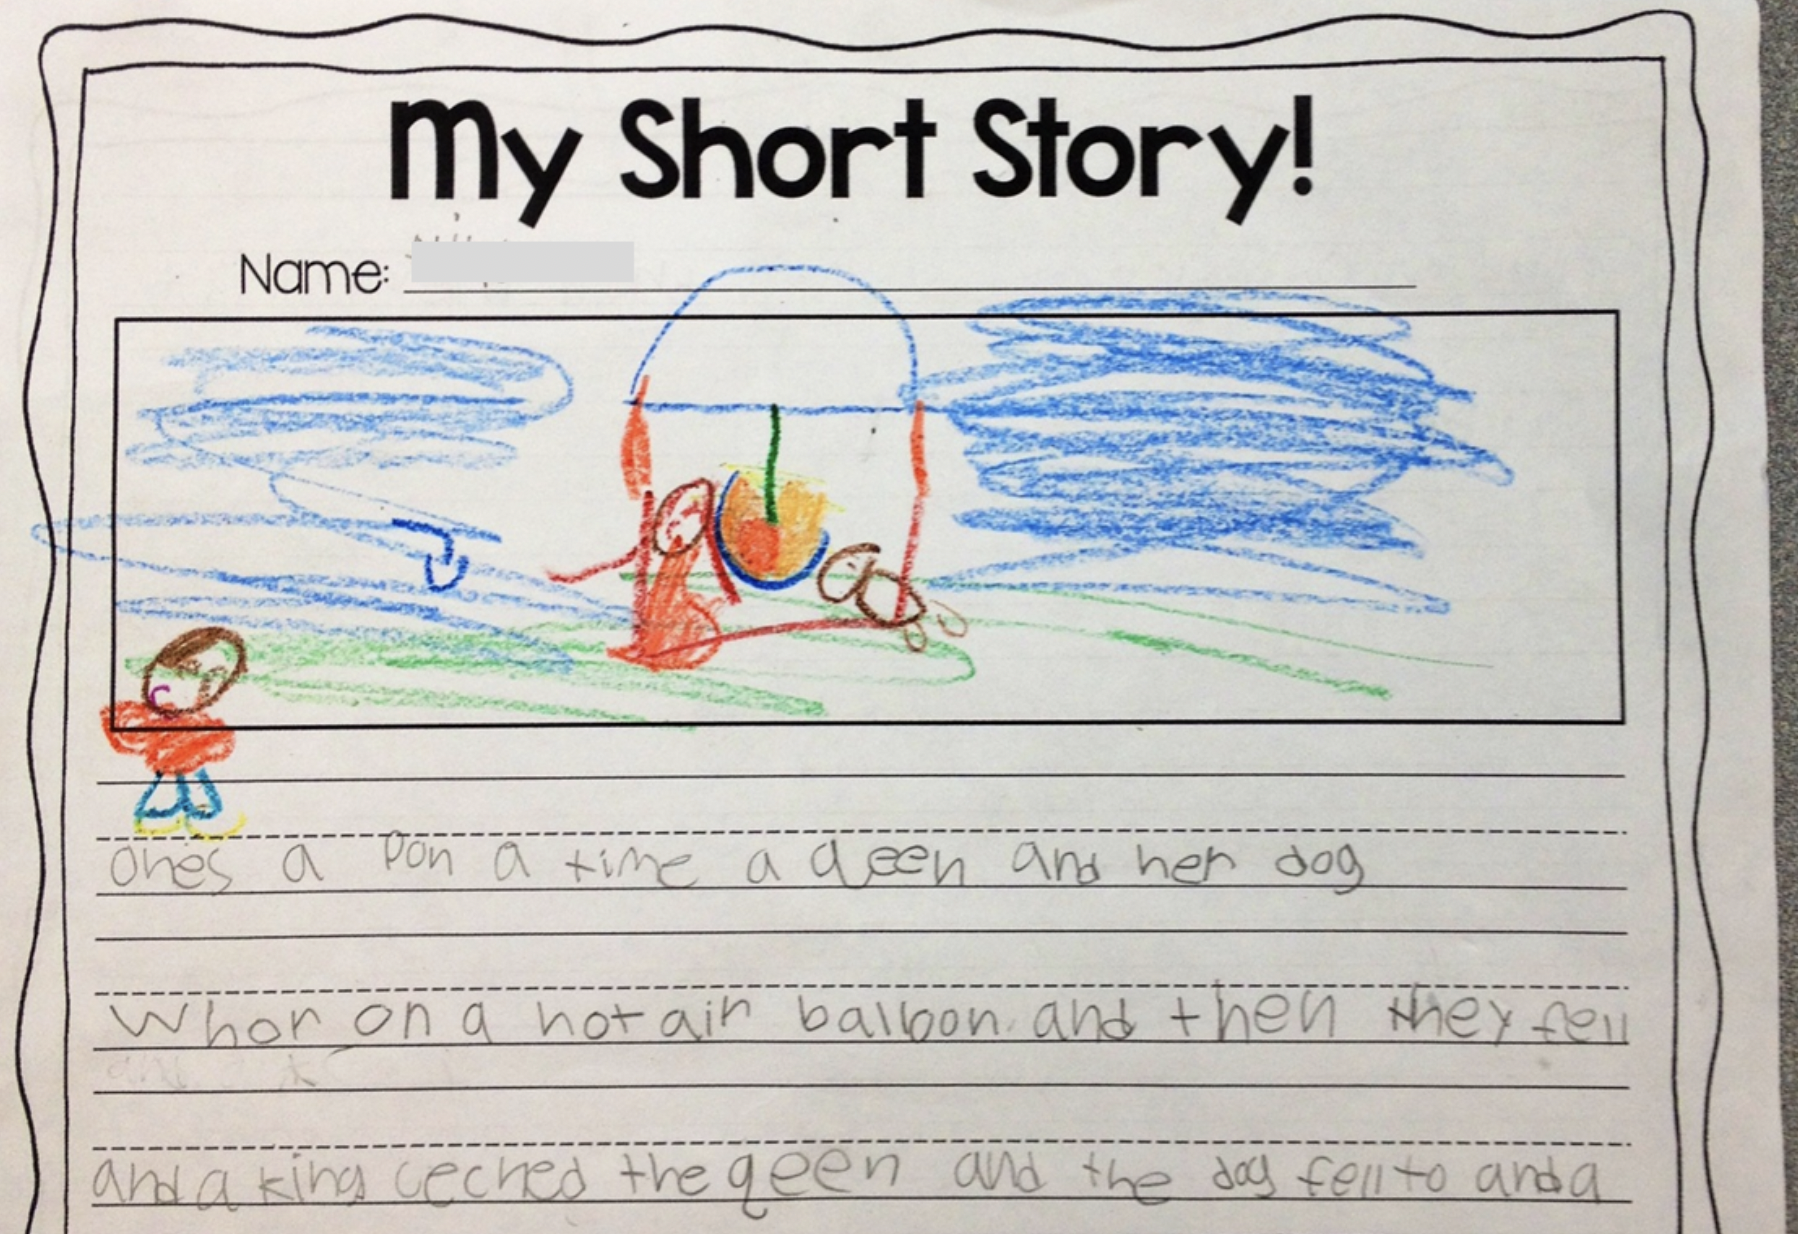 My Short Story!
Name:
ones a pon a time a qeen and her dog
Whor on a hot air balloon and then they fell
and a king ceched the qeen and the dog fell to and a